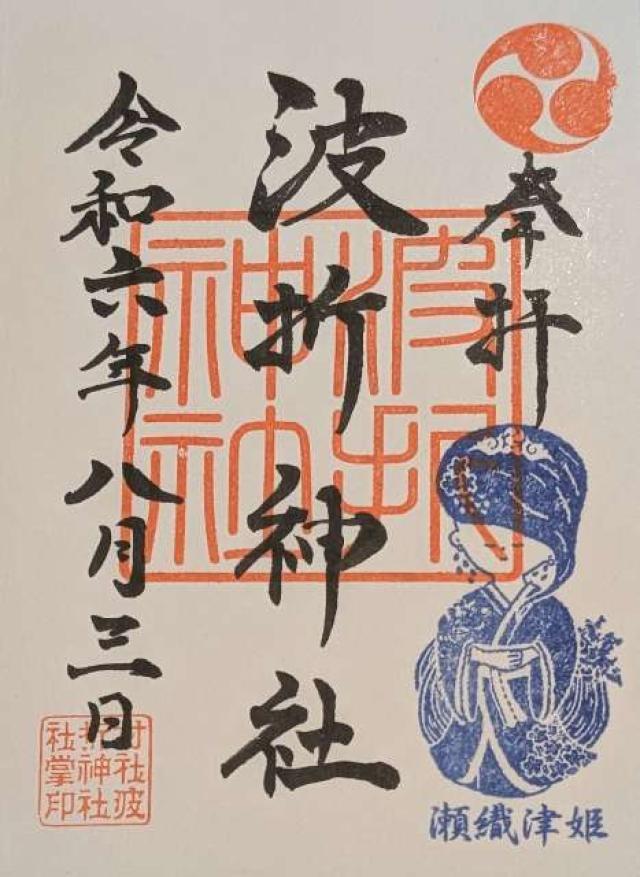 奉拝
瀬織津姫
波折神社
波折神社
令和六年八月三日
村社波
折神社
社掌印